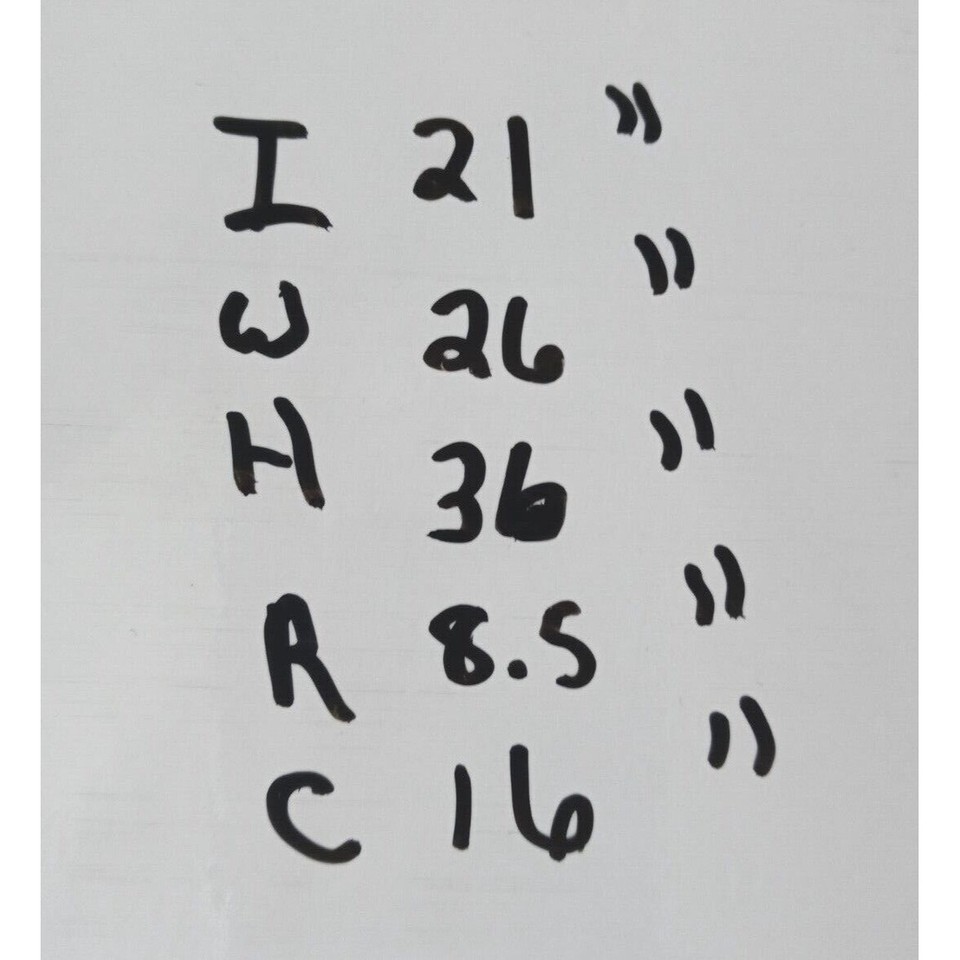 I 21"
W 26"
H 36"
R 8.5"
C 16"